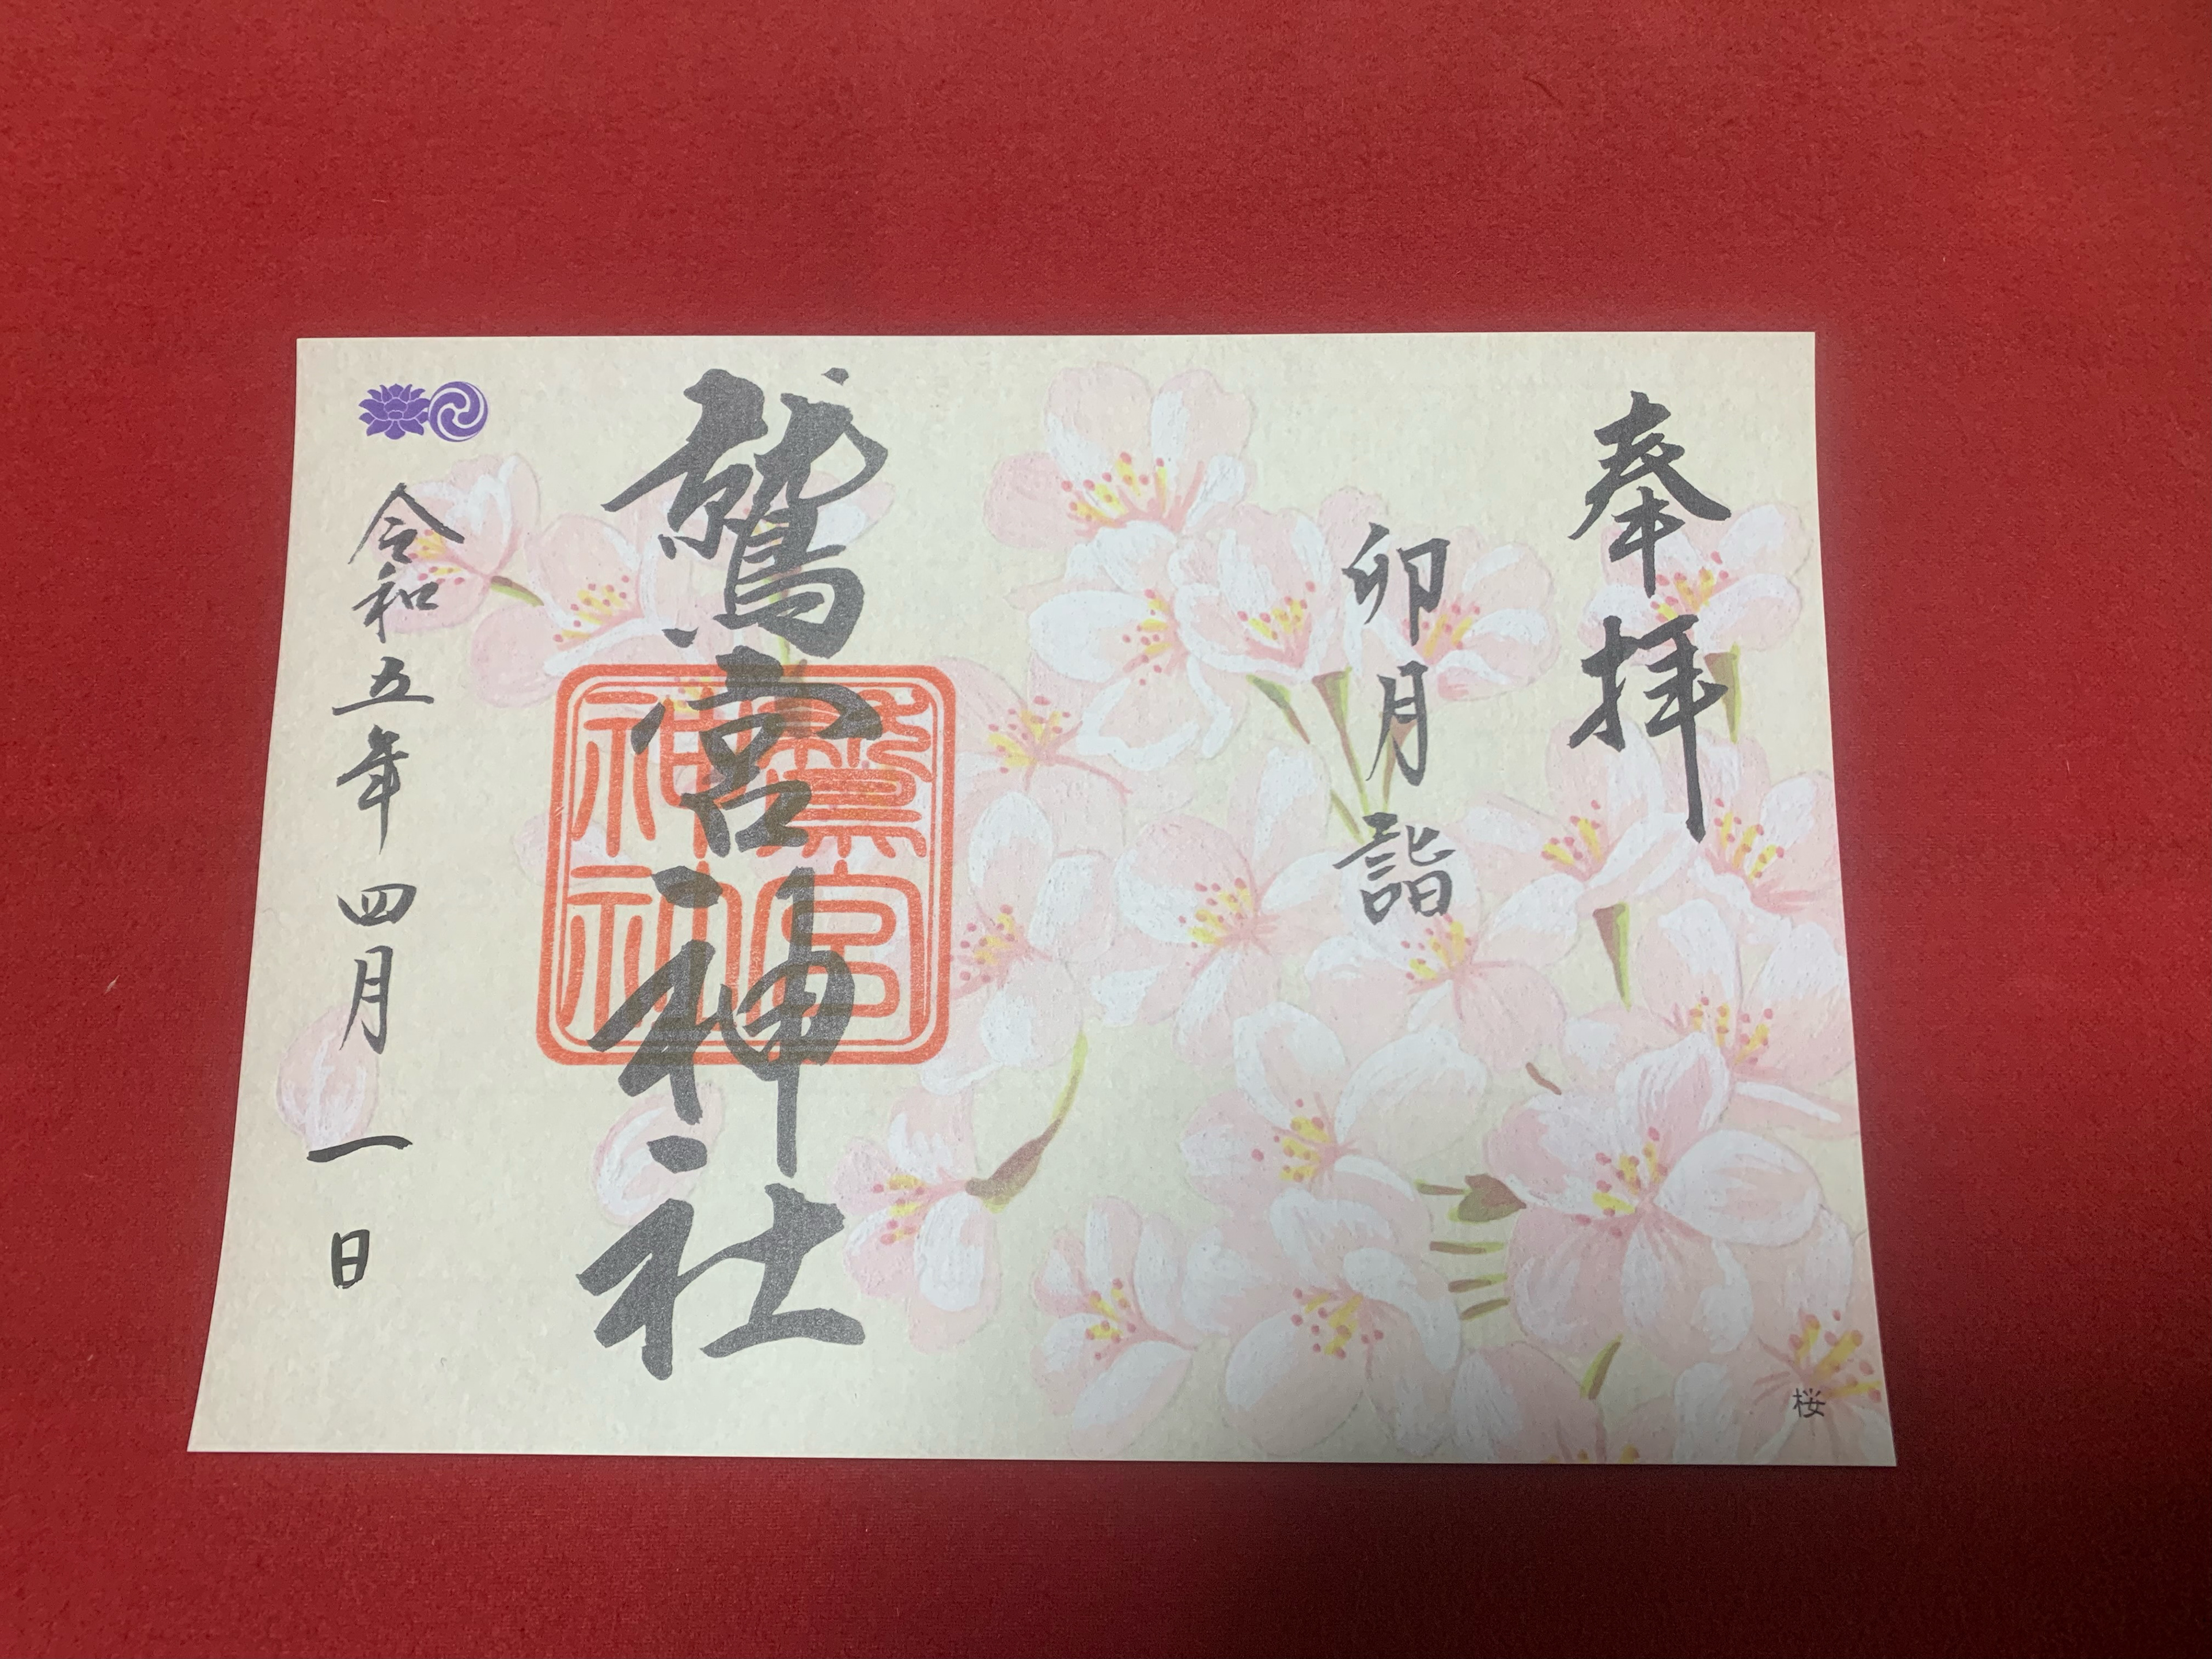 奉拝
卯月詣
鷲宮神社
鷲宮
神社
令和五年四月一日
桜